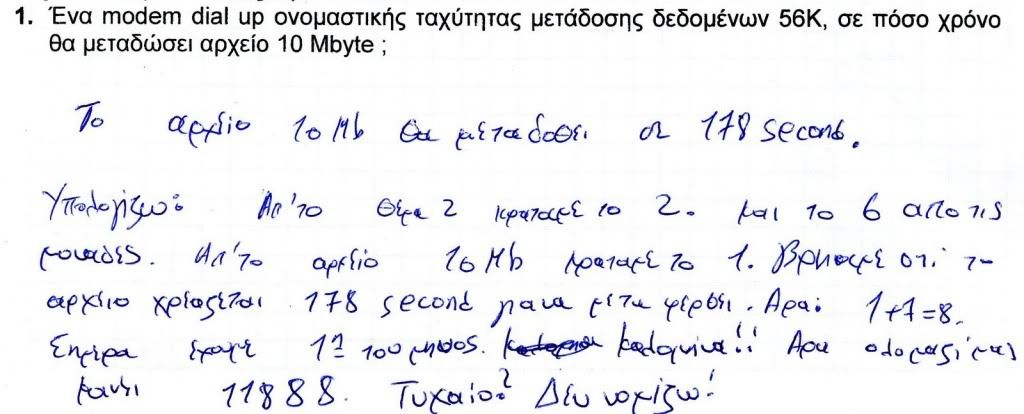 1. Ένα modem dial up ονομαστικής ταχύτητας μετάδοσης δεδομένων 56K, σε πόσο χρόνο
θα μεταδώσει αρχείο 10 Mbyte ;
Το αρχείο 10 Mb θα μεταδοθει σε 178 second.
Υπολογίζω: Απ'το θέμα 2 κραταμε το 2. και το 6 απο τις
μοναδες. Απ'το αρχείο 10 Mb κραταμε το 1. Βρηκαμε οτι το
αρχειο χρειαζεται 178 second για να μεταφερθει. Αρα: 1+7=8.
Σημερα έχουμε 1η του μηνος. καλομηνα!! Αρα ολο μαζι μας
κανει 11888. Τυχαίο? Δεν νομίζω!